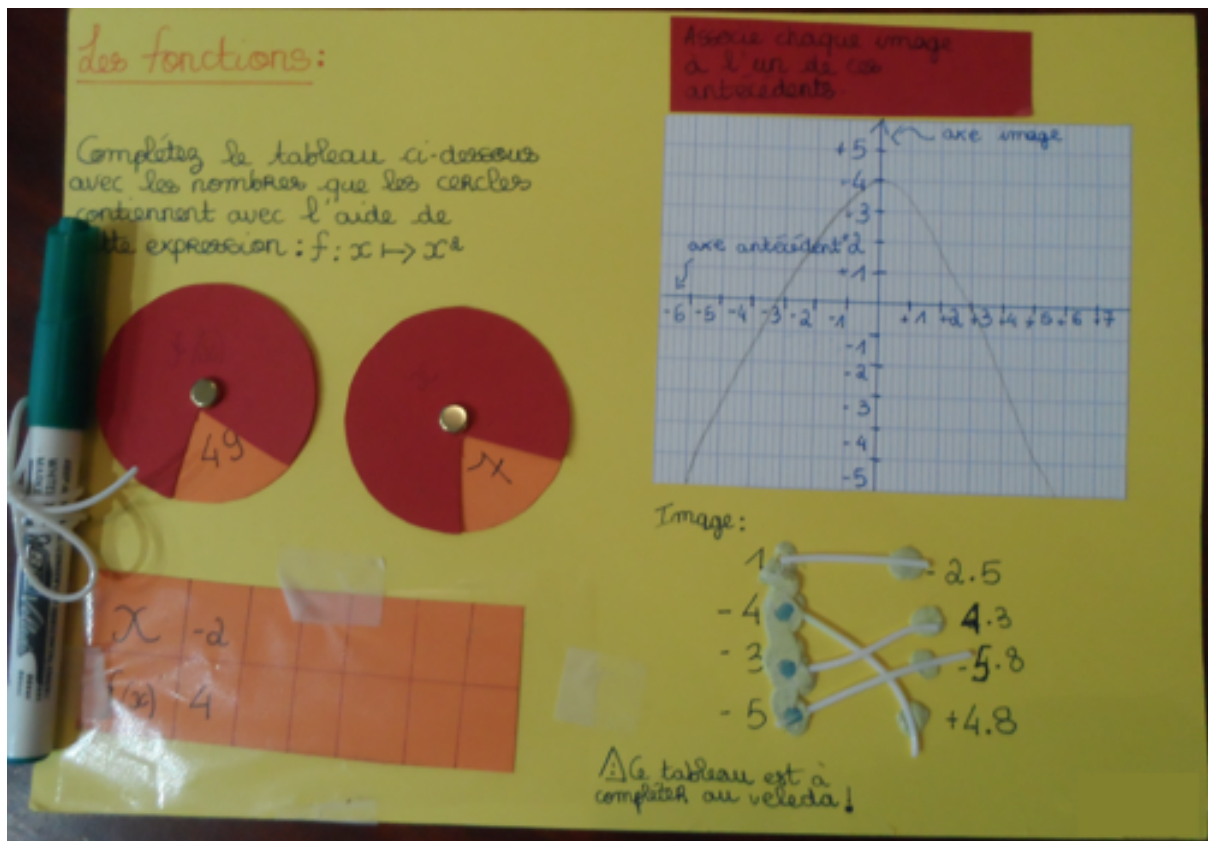 Les fonctions:
Complétez le tableau ci-dessous
avec les nombres que les cercles
contiennent avec l'aide de
expression : f : x ↦ x²
49
7
x -2
f(x) 4
Associe chaque image
à l'un de ces
antécédents
axe image
+5
+4
+3
+2
+1
axe antécédent
-6 -5 -4 -3 -2 -1 +1 +2 +3 +4 +5 +6 +7
-1
-2
-3
-4
-5
Image:
1 - 2.5
- 4 4.3
- 3 -5.8
- 5 +4.8
⚠Ce tableau est à
compléter au veleda!